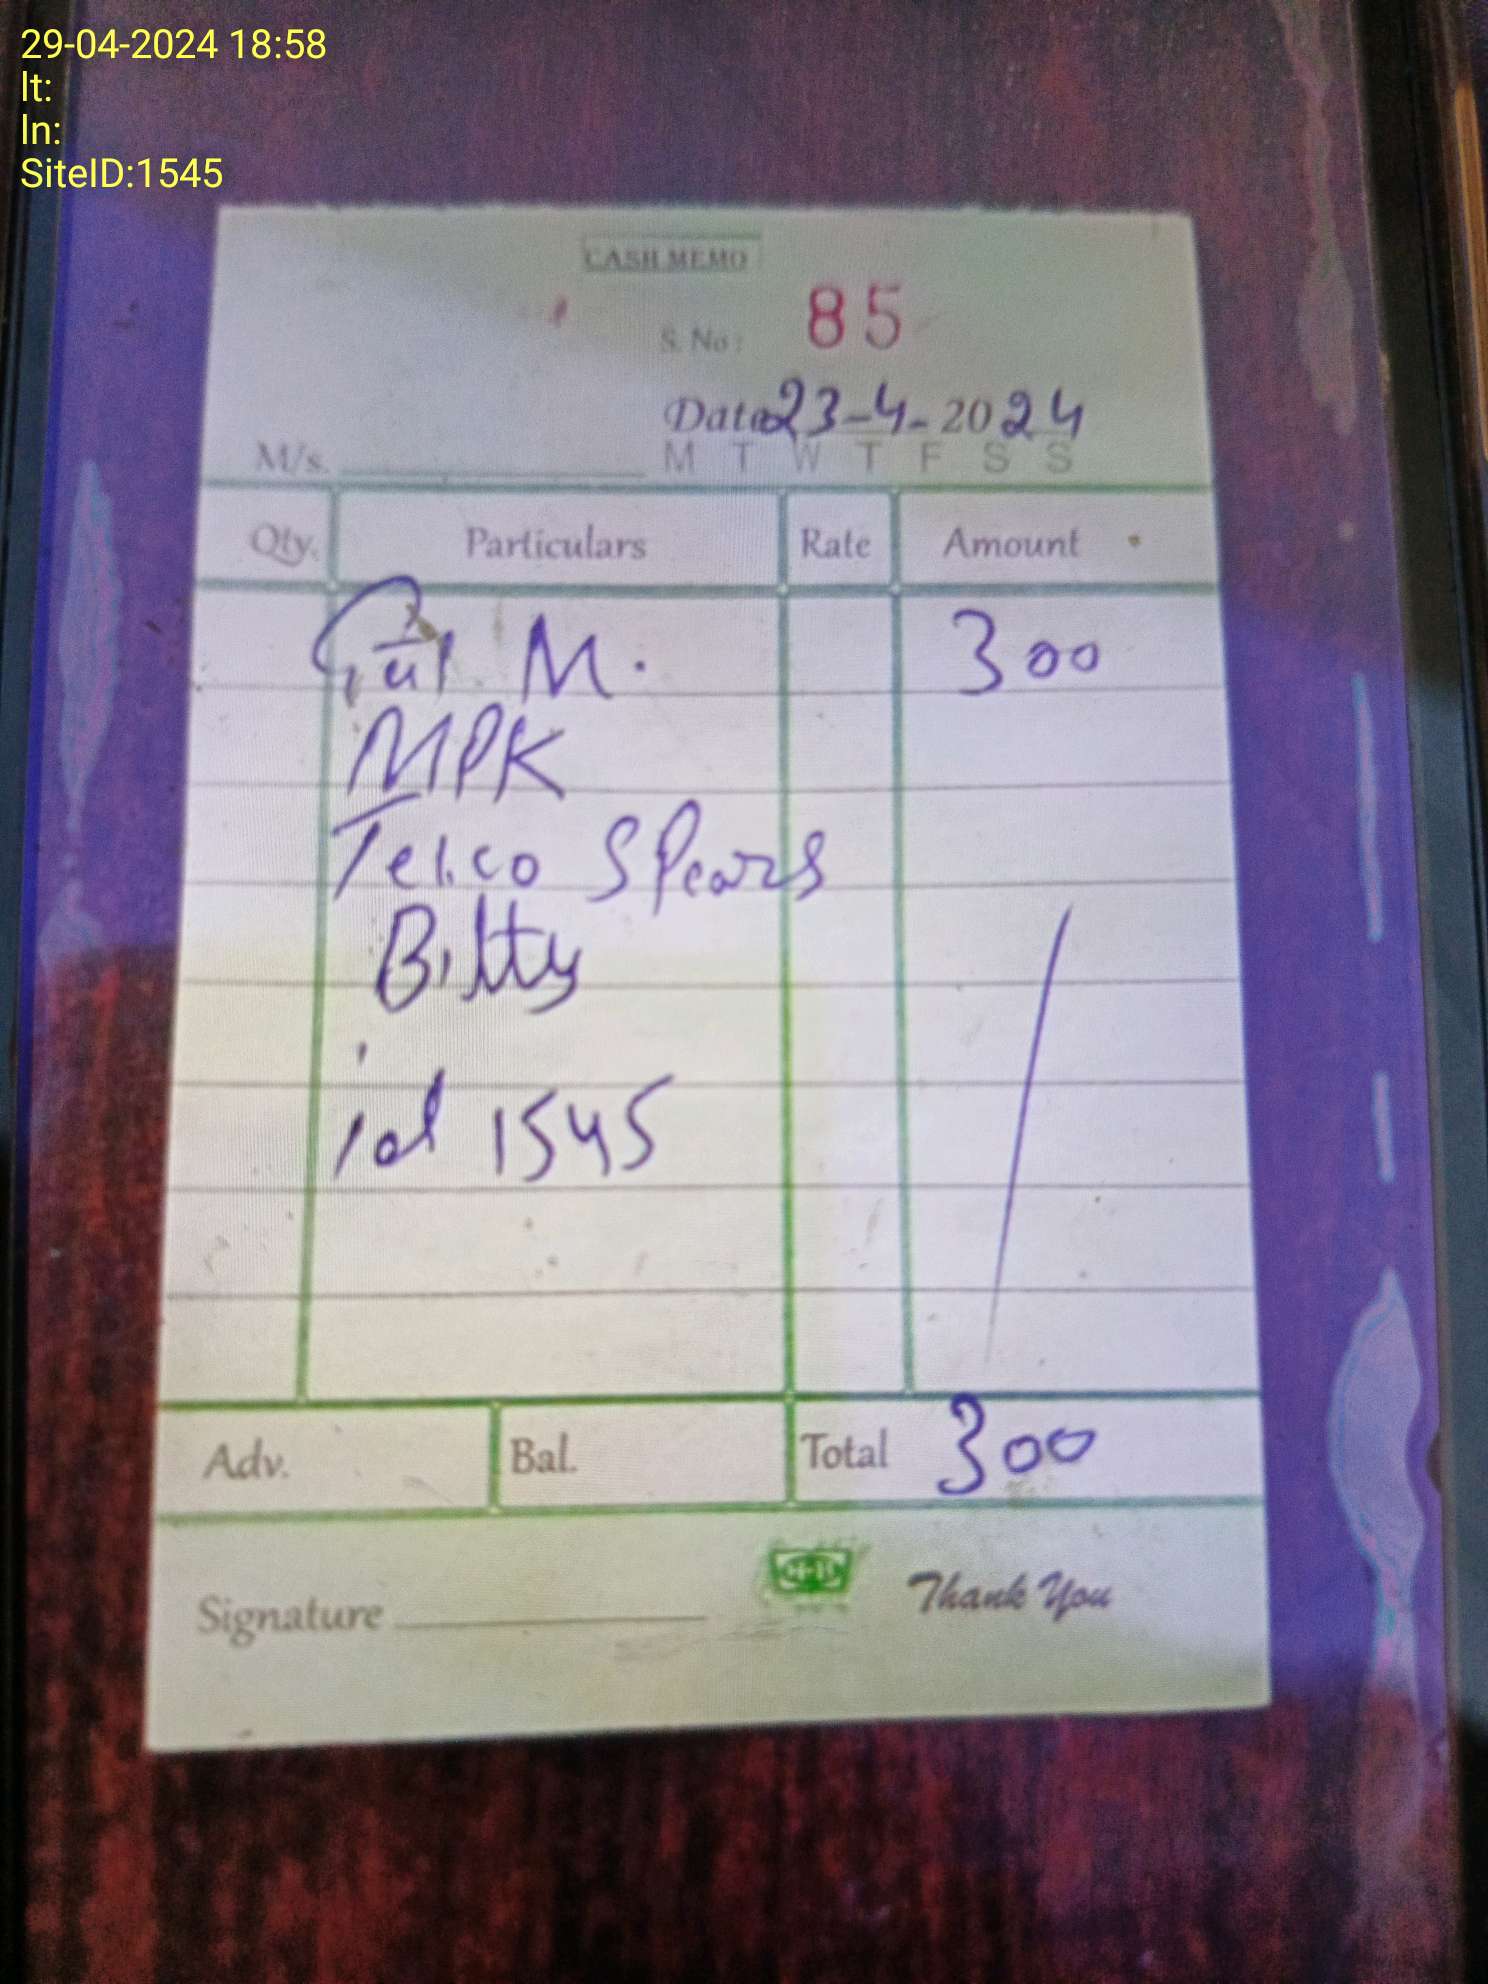 29-04-2024 18:58
lt:
ln:
SiteID:1545
CASH MEMO
S. No: 85
Date 23-4-2024
M/s.
M T W T F S S
Qty. Particulars Rate Amount
M. 300
MPK
Telco Spears
Bilty
id 1545
Adv. Bal. Total 300
Signature Thank You